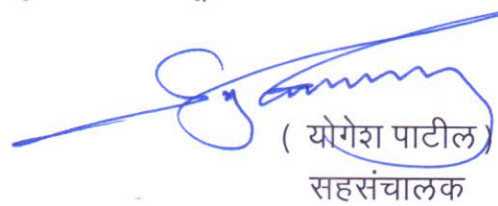 ( योगेश पाटील )
सहसंचालक